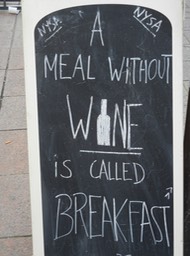 NYSA NYSA
A
MEAL WITHOUT
WINE
is CALLED
BREAKFAST